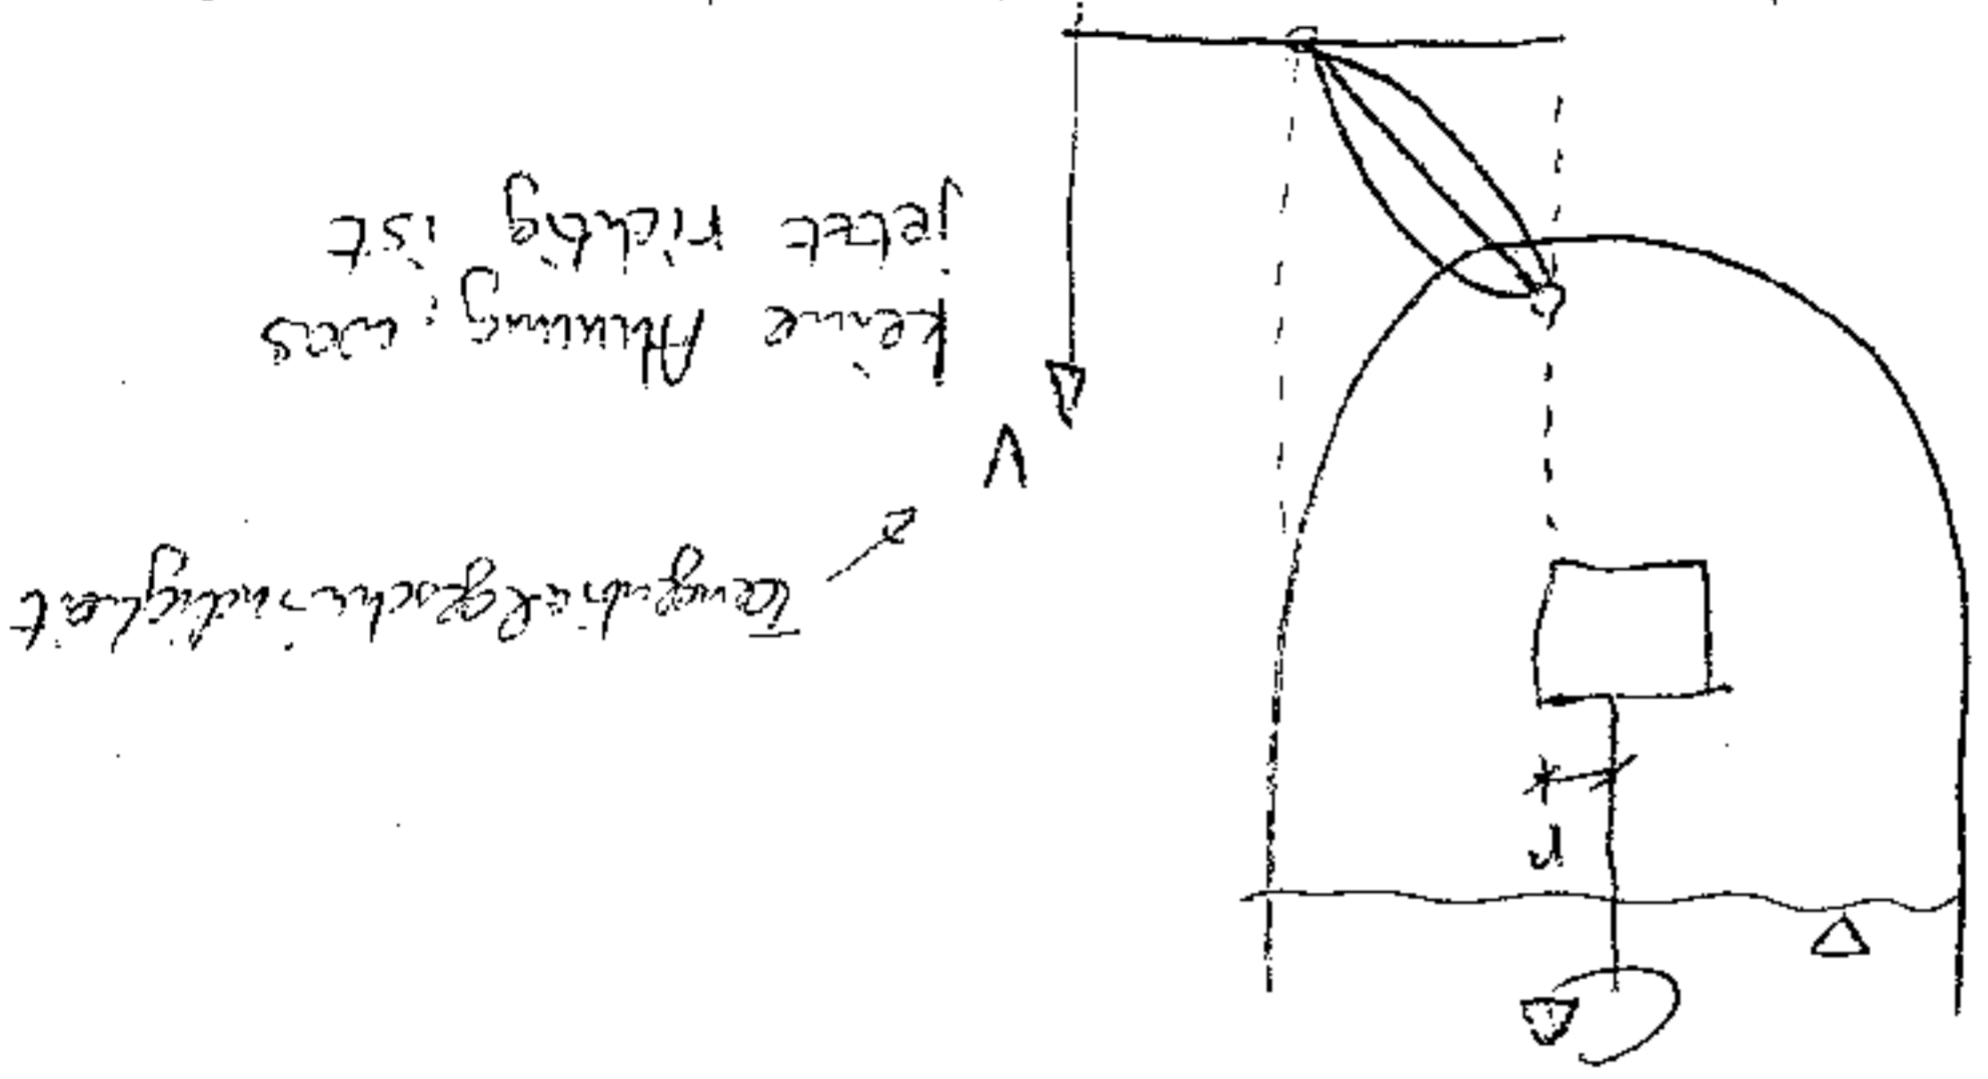 Tangentialgeschwindigkeit
V
keine Ahnung, was
jetzt richtig ist
r